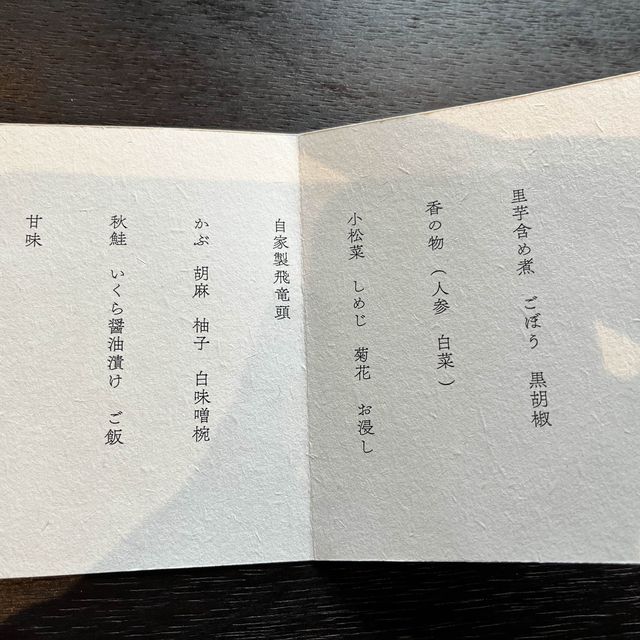 里芋含め煮　ごぼう　黒胡椒
香の物（人参　白菜）
小松菜　しめじ　菊花　お浸し
自家製飛竜頭
かぶ　胡麻　柚子　白味噌椀
秋鮭　いくら醤油漬け　ご飯
甘味